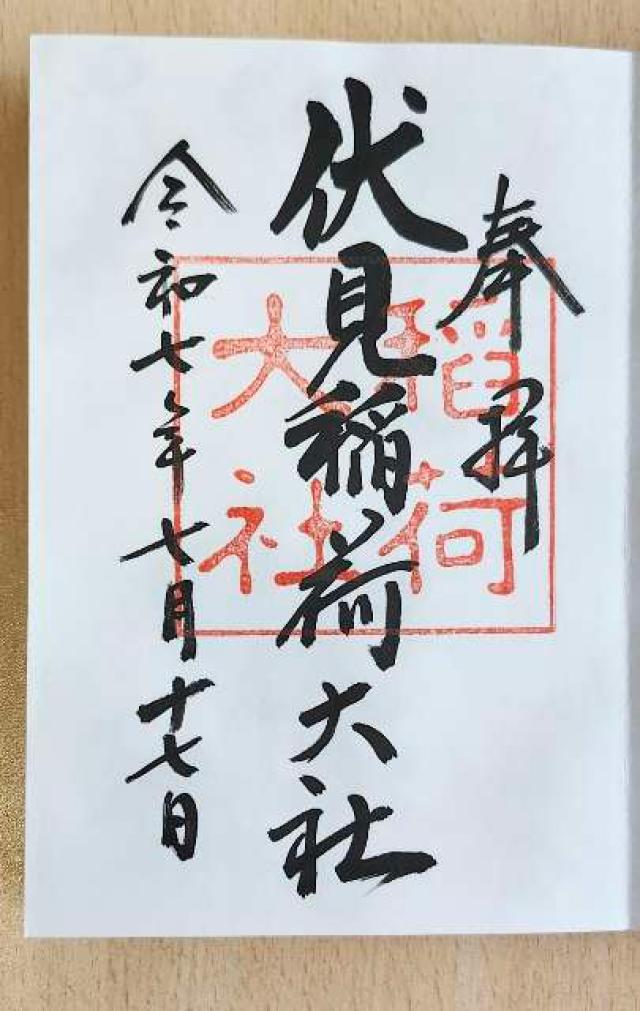 奉拝
伏見稲荷大社
令和七年七月十七日
稲荷
大社